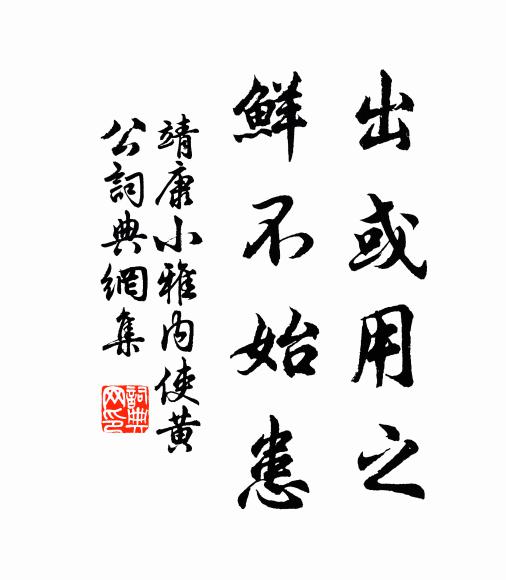 出或用之
鮮不始患
靖康小雅內使黃
公詞典網集
詞典網印